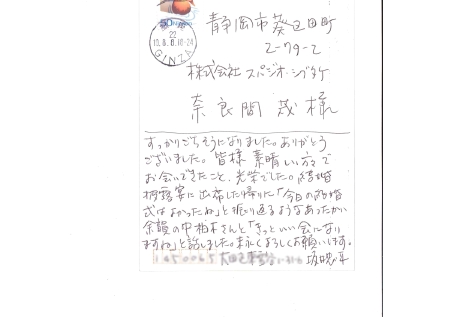 22
10.8.8.10-24
GINZA
静岡市葵区田町
2-79-2
株式会社 スタジオ・シブタケ
奈良間 茂 様
すっかりごちそうになりました。ありがとう
ございました。皆様 素晴しい方々で
お会いできたこと、光栄でした。結婚
披露宴に出席した帰りに「今日の結婚
式はよかったね」と振り返るようなあったかい
余韻の中 柏木さんと「きっといい会になり
ますね」と話しました。末永くよろしくお願いします。